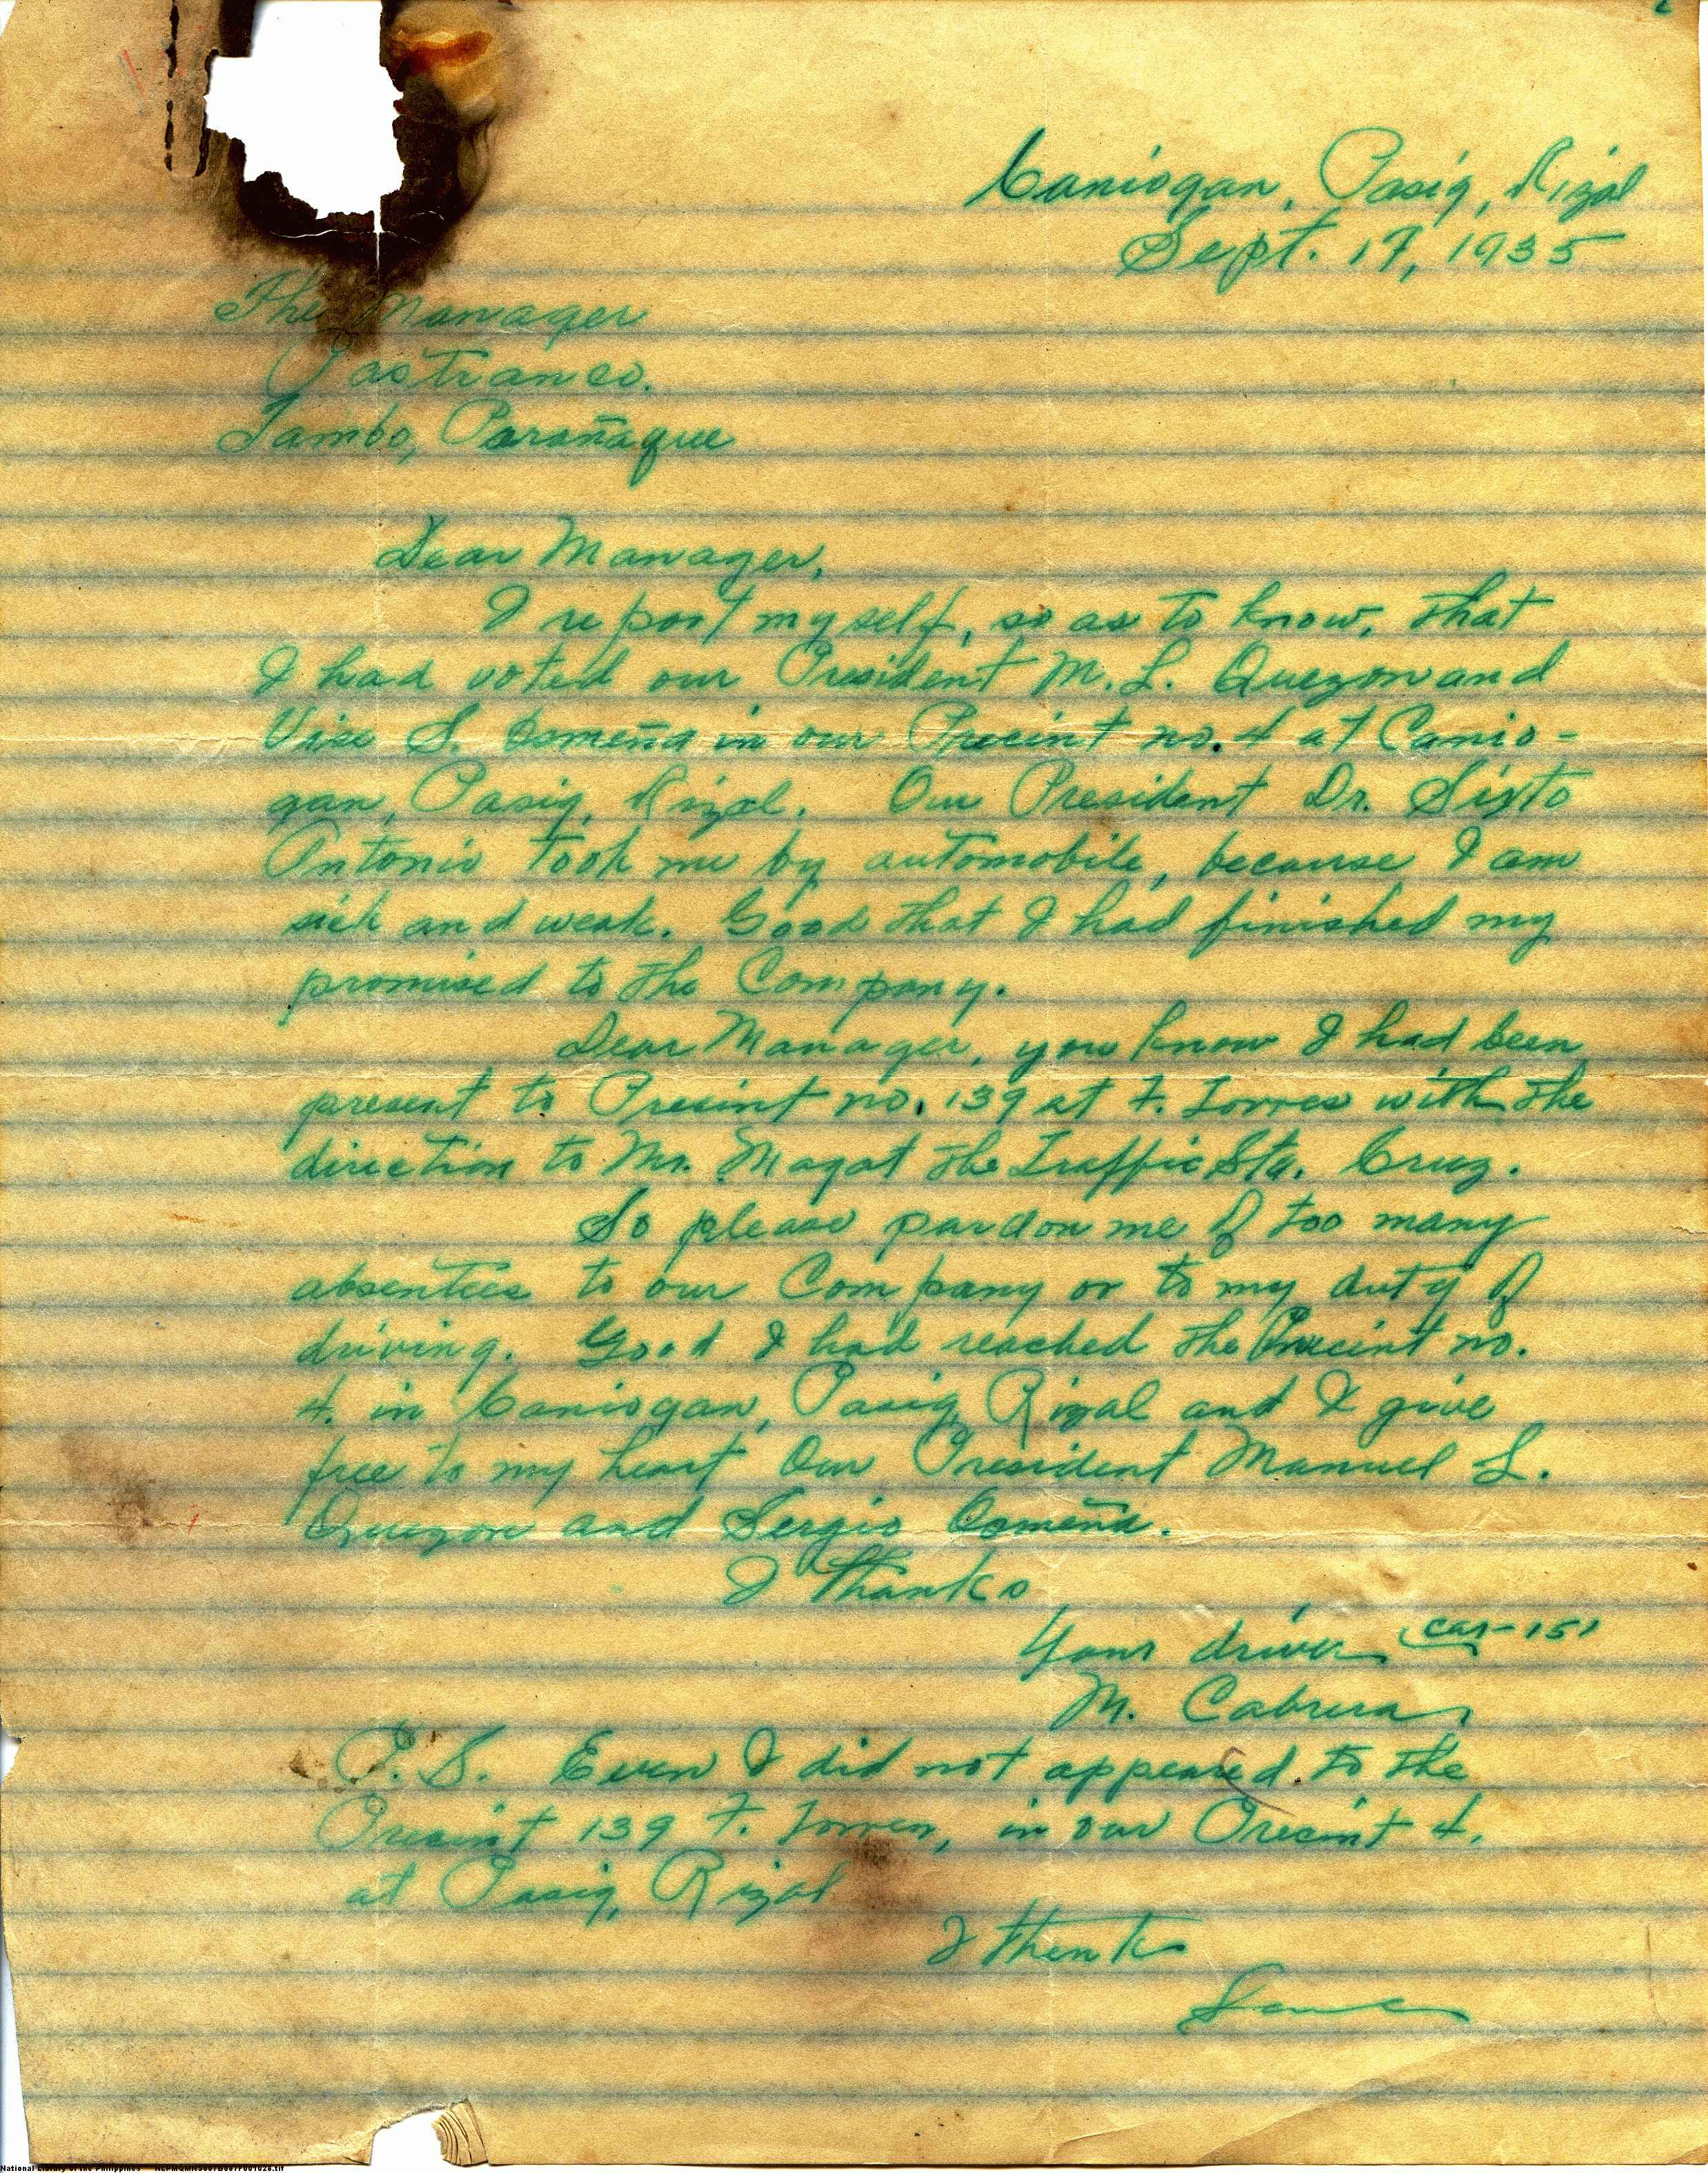 Caniogan, Pasig, Rizal
Sept. 17, 1935
The Manager
Pastranco.
Tambo, Parañaque
Dear Manager,
I report myself, so as to know, that
I had voted our President M. L. Quezon and
Vise S. Osmeña in our Precint no. 4 at Canio-
gan, Pasig, Rizal. Our President Dr. Sixto
Antonio took me by automobile, because I am
sick and weak. Good that I had finished my
promised to the Company.
Dear Manager, you know I had been
present to Presint no. 139 at F. Torres with the
direction to Mr. Magat the Traffic Sta. Cruz.
So please pardon me of too many
absentees to our Company or to my duty of
driving. Good I had reached the Precint no.
4. in Caniogan, Pasig Rizal and I give
free to my heart Our President Manuel L.
Quezon and Sergio Osmeña.
I thanks
Your driver car-151
M. Cabrera
P.S. Even I did not appeared to the
Presint 139 F. Torres, in our Presint 4.
at Pasig, Rizal
I thanks
Same
National Library of the Philippines